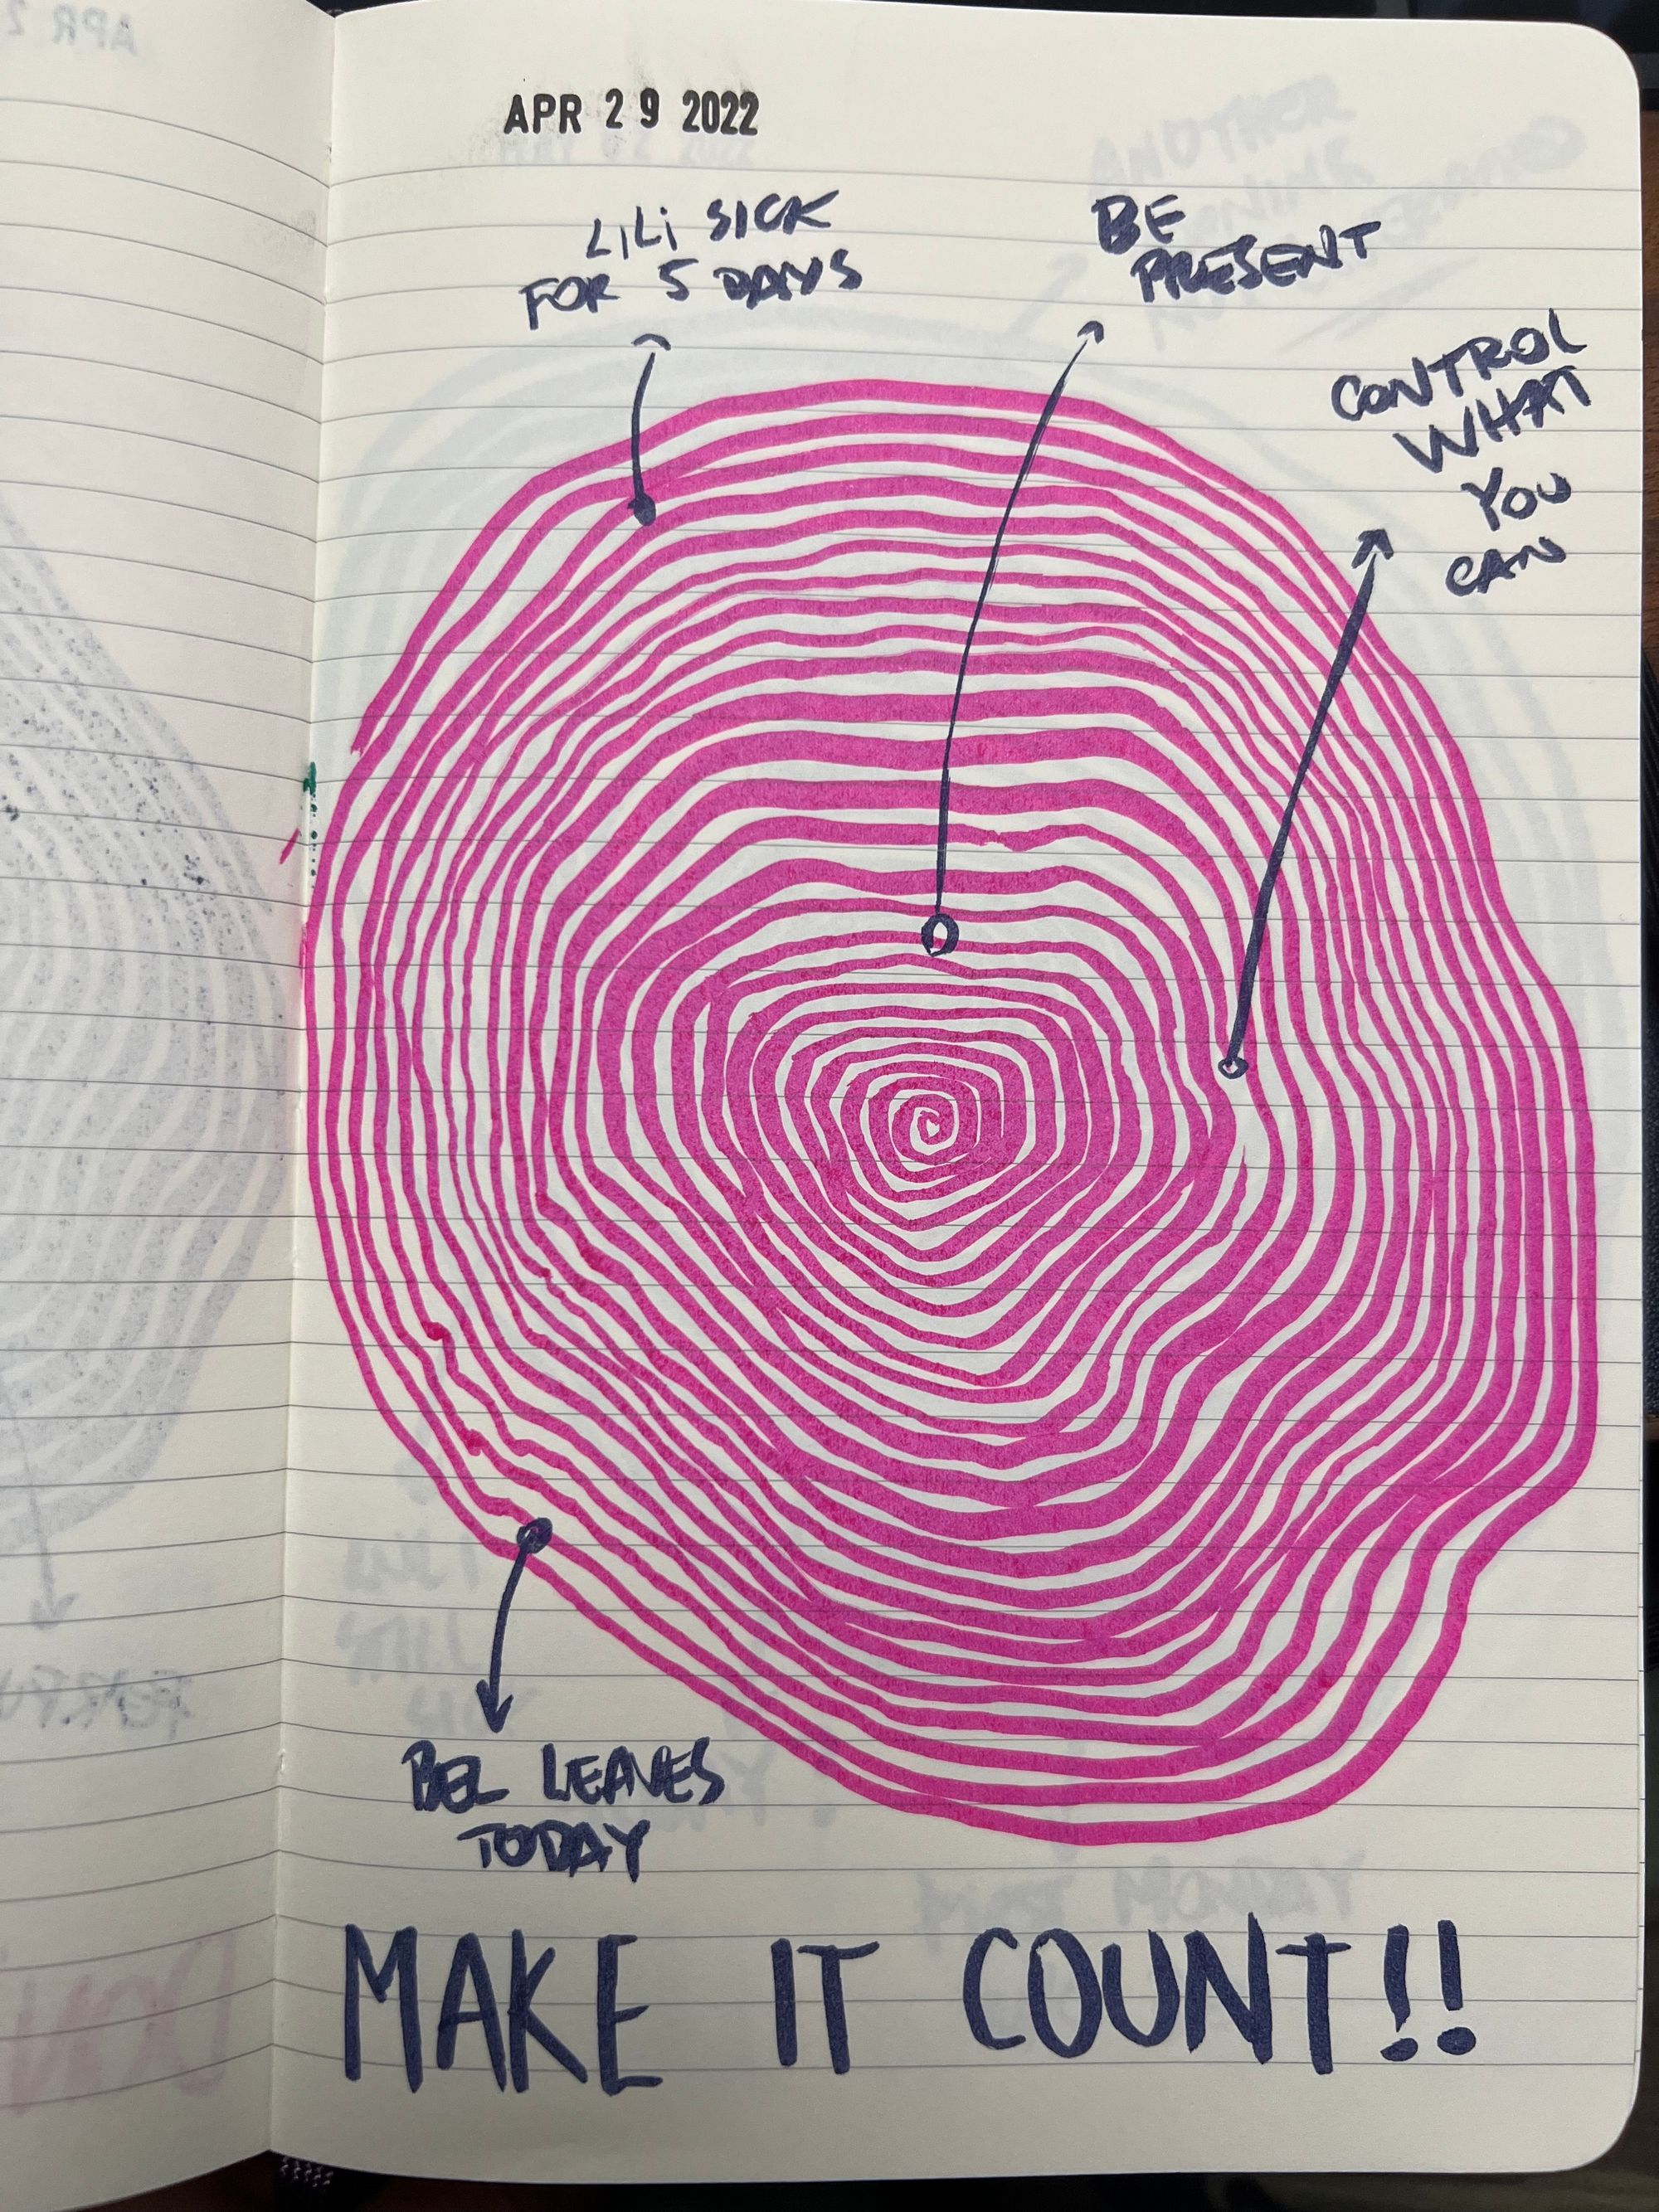 APR 29 2022
LiLi SICK
FOR 5 DAYS
BE
PRESENT
CONTROL
WHAT
YOU
CAN
BEL LEAVES
TODAY
MAKE IT COUNT!!